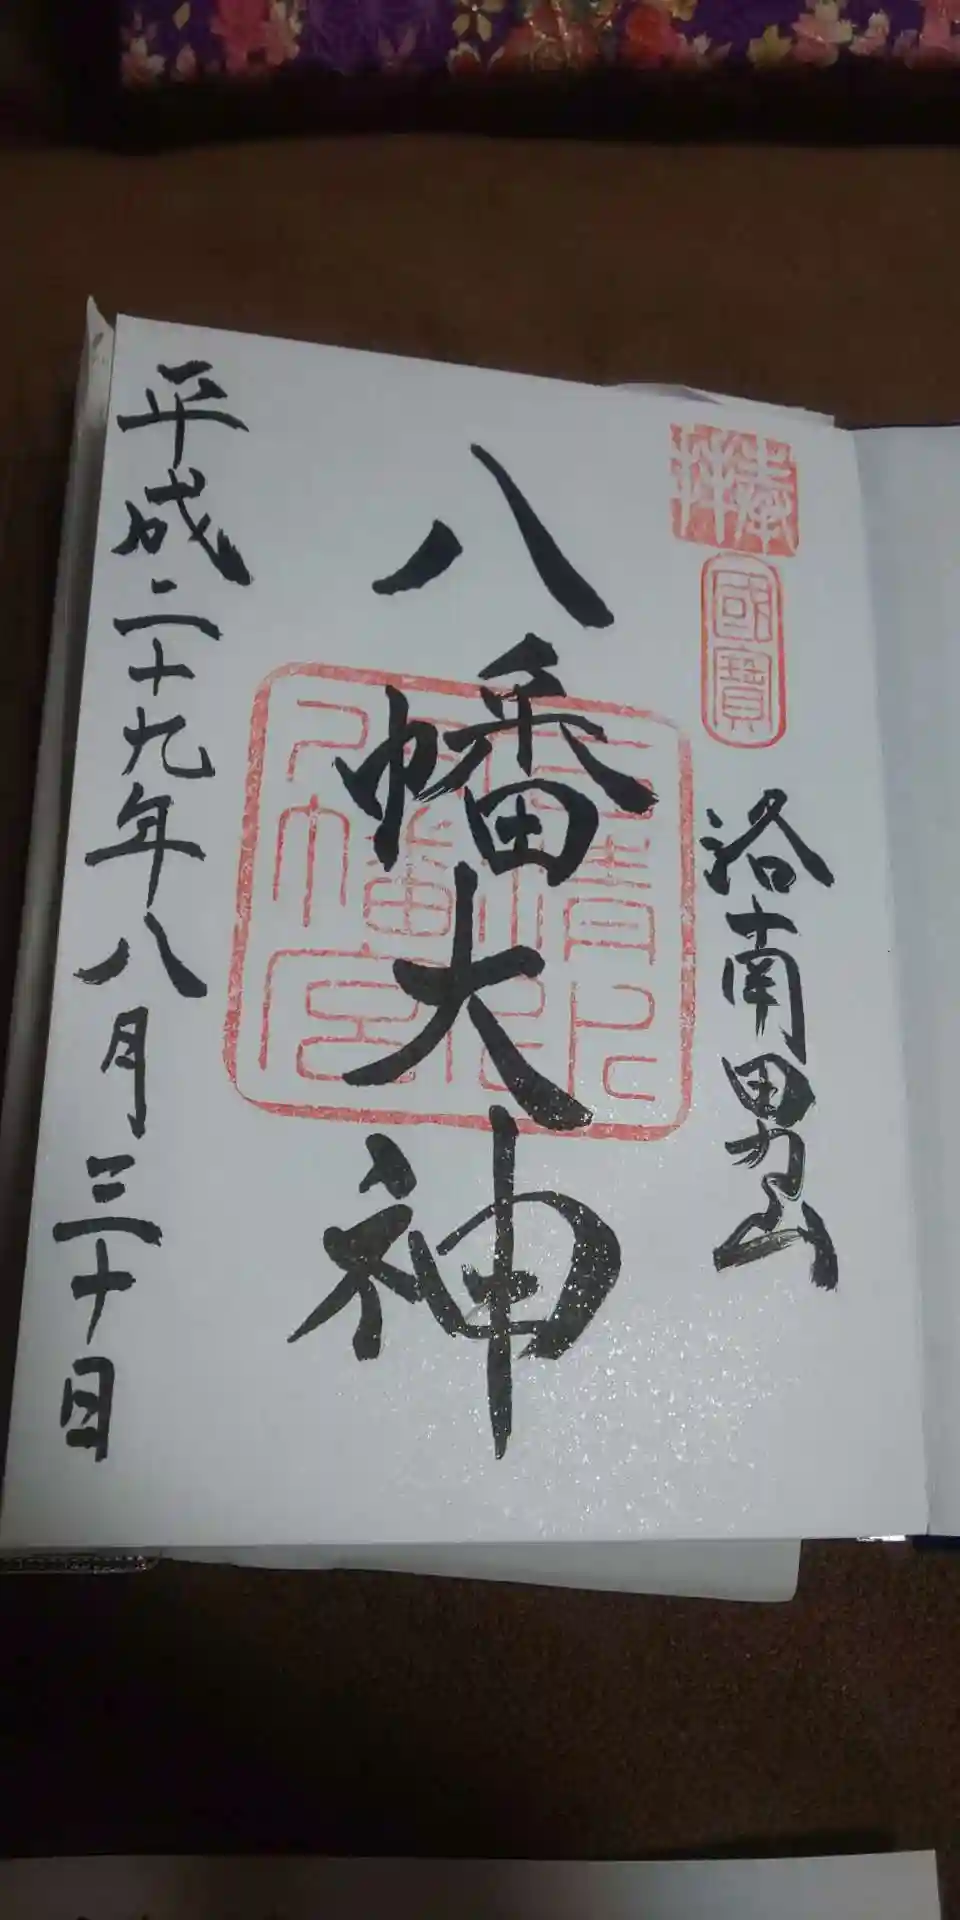 奉拝
國寶
洛南男山
八幡大神
石清水
八幡宮印
平成二十九年八月三十日